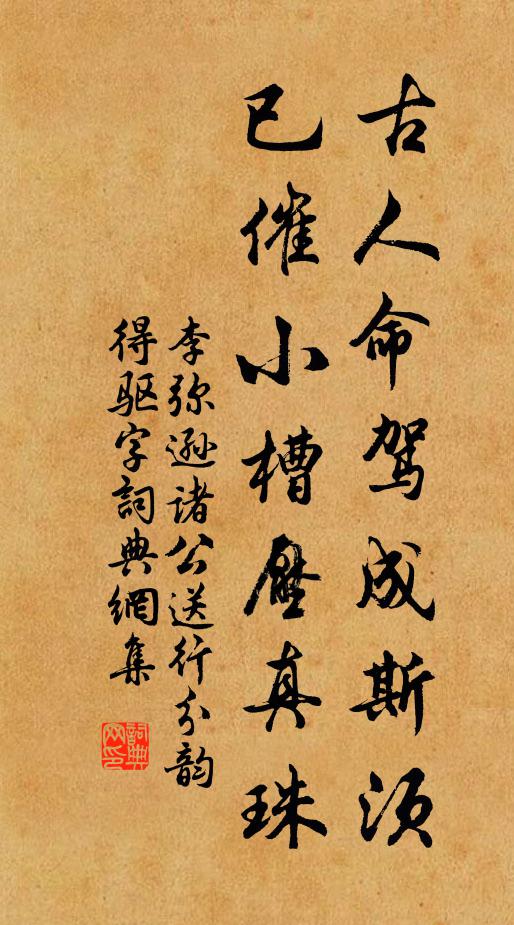 古人命驾成斯须
已催小槽压真珠
李弥逊诸公送行分韵
得驱字詞典網集
詞典網印